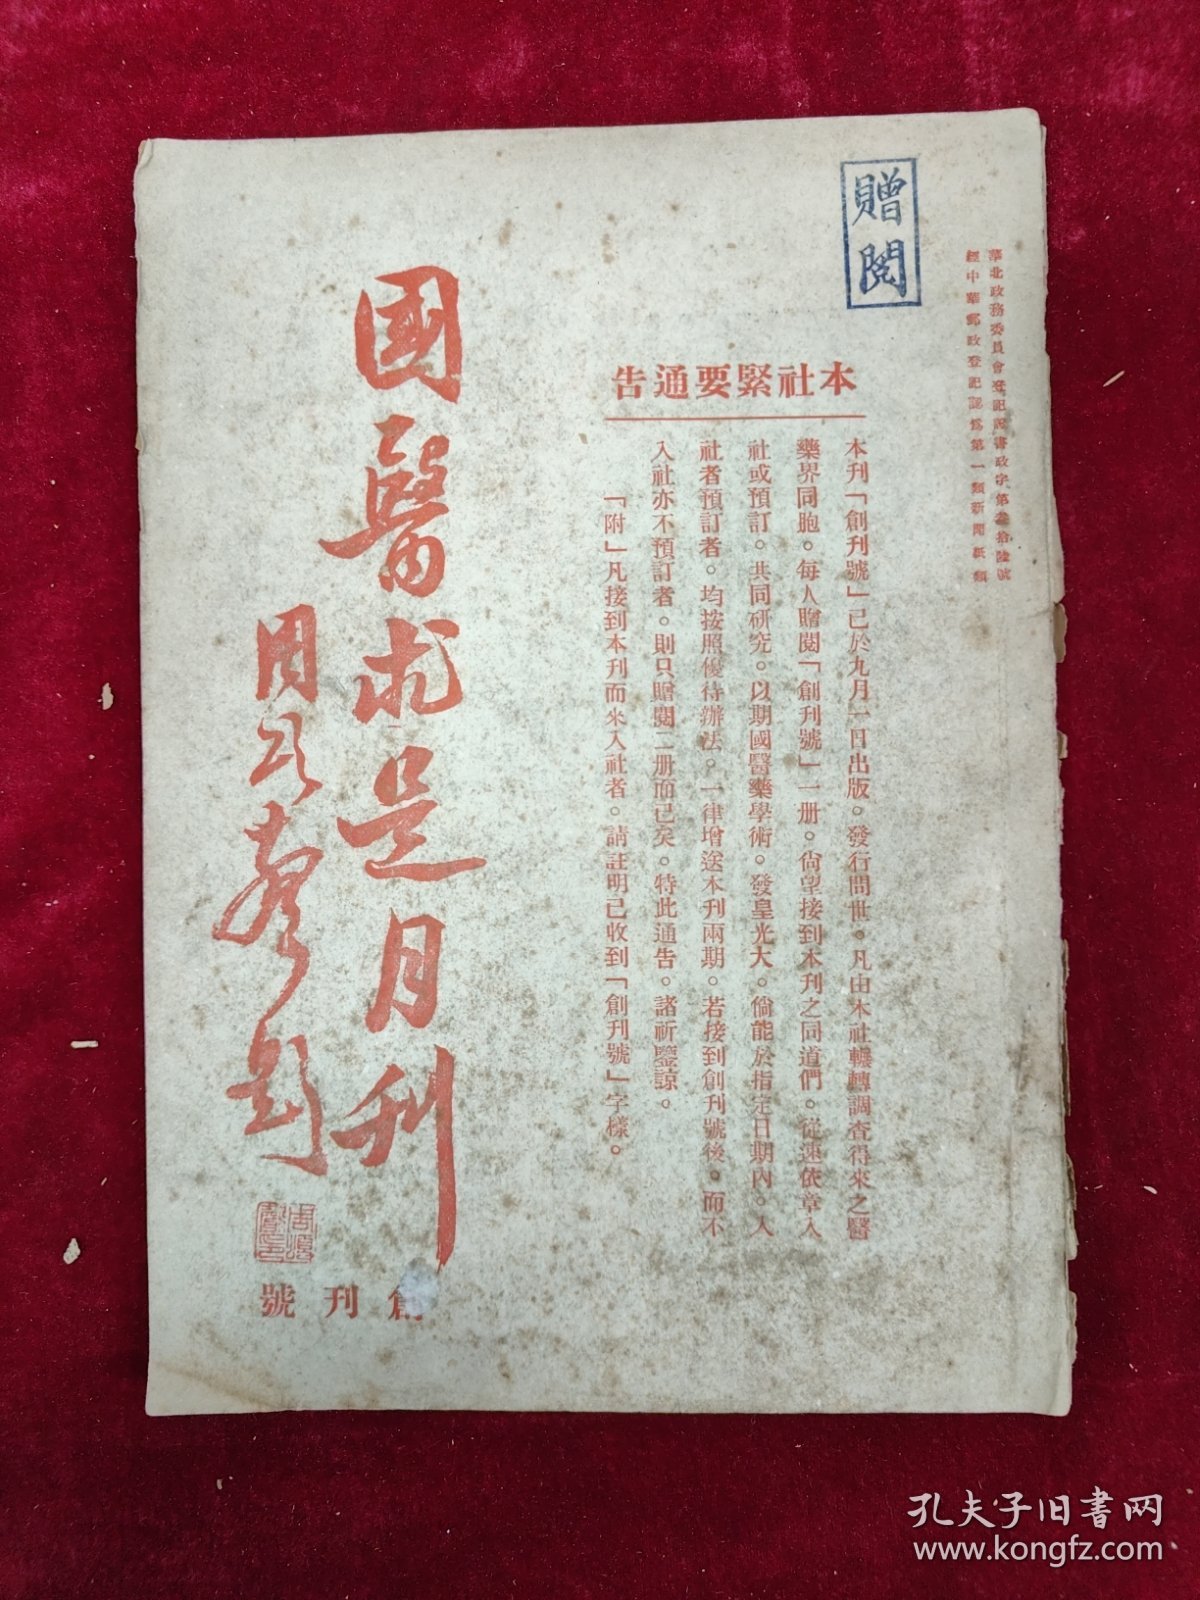 華北政務委員會登記證書政字第叁拾陸號
經中華郵政登記認爲第一類新聞紙類
贈閱
本社緊要通告
本刊「創刊號」已於九月一日出版。發行問世。凡由本社輾轉調查得來之醫
藥界同胞。每人贈閱「創刊號」一册。尙望接到本刊之同道們。從速依章入
社或預訂。共同研究。以期國醫藥學術。發皇光大。倘能於指定日期內。入
社者預訂者。均按照優待辦法。一律增送本刊兩期。若接到創刊號後。而不
入社亦不預訂者。則只贈閱二册而已矣。特此通告。諸祈鑒諒。
「附」凡接到本刊而來入社者。請註明已收到「創刊號」字樣。
國醫求是月刊
周 題
創刊號
孔夫子旧书网
www.kongfz.com